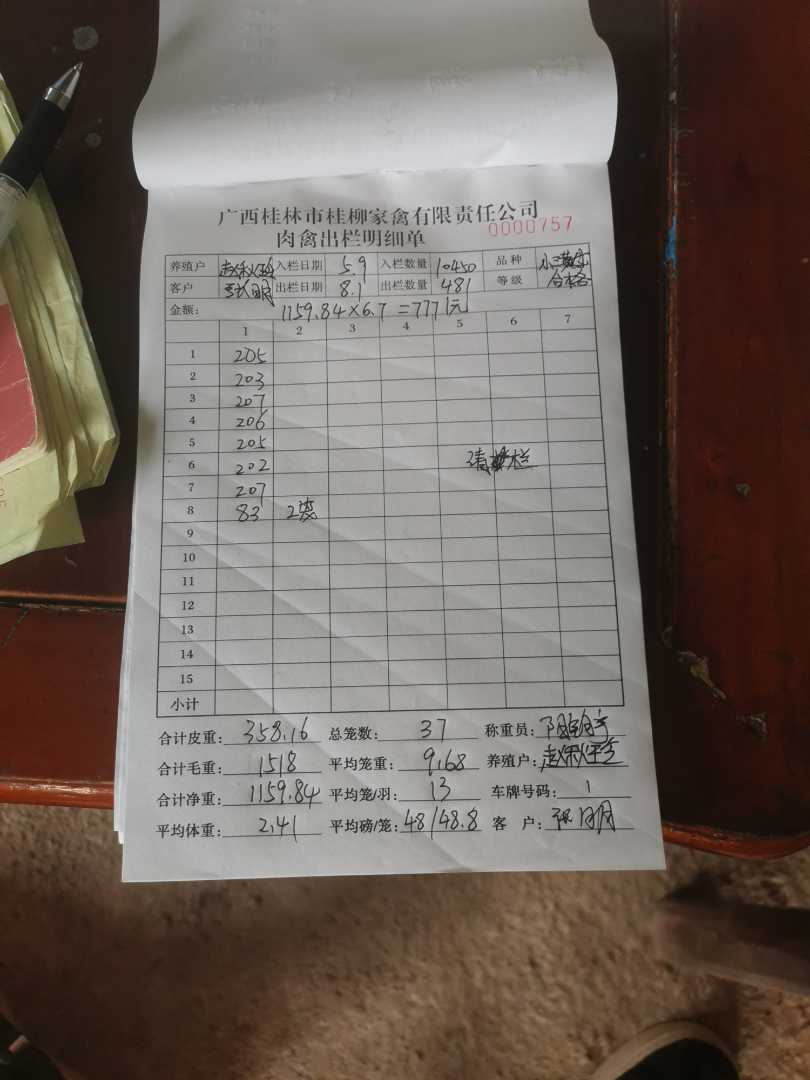 广西桂林市桂柳家禽有限责任公司
肉禽出栏明细单 0000757
养殖户 入栏日期 5.9 入栏数量 10450 品种
客户 出栏日期 8.1 出栏数量 481 等级 合格
金额: 1159.84×6.7=7771元
1 2 3 4 5 6 7
1 205
2 203
3 207
4 206
5 205
6 202 清栏
7 207
8 83 2袋
9
10
11
12
13
14
15
小计
合计皮重: 358.16 总笼数: 37 称重员:
合计毛重: 1518 平均笼重: 9.68 养殖户:
合计净重: 1159.84 平均笼/羽: 13 车牌号码: 1
平均体重: 2.41 平均磅/笼: 48/48.8 客户: 张明